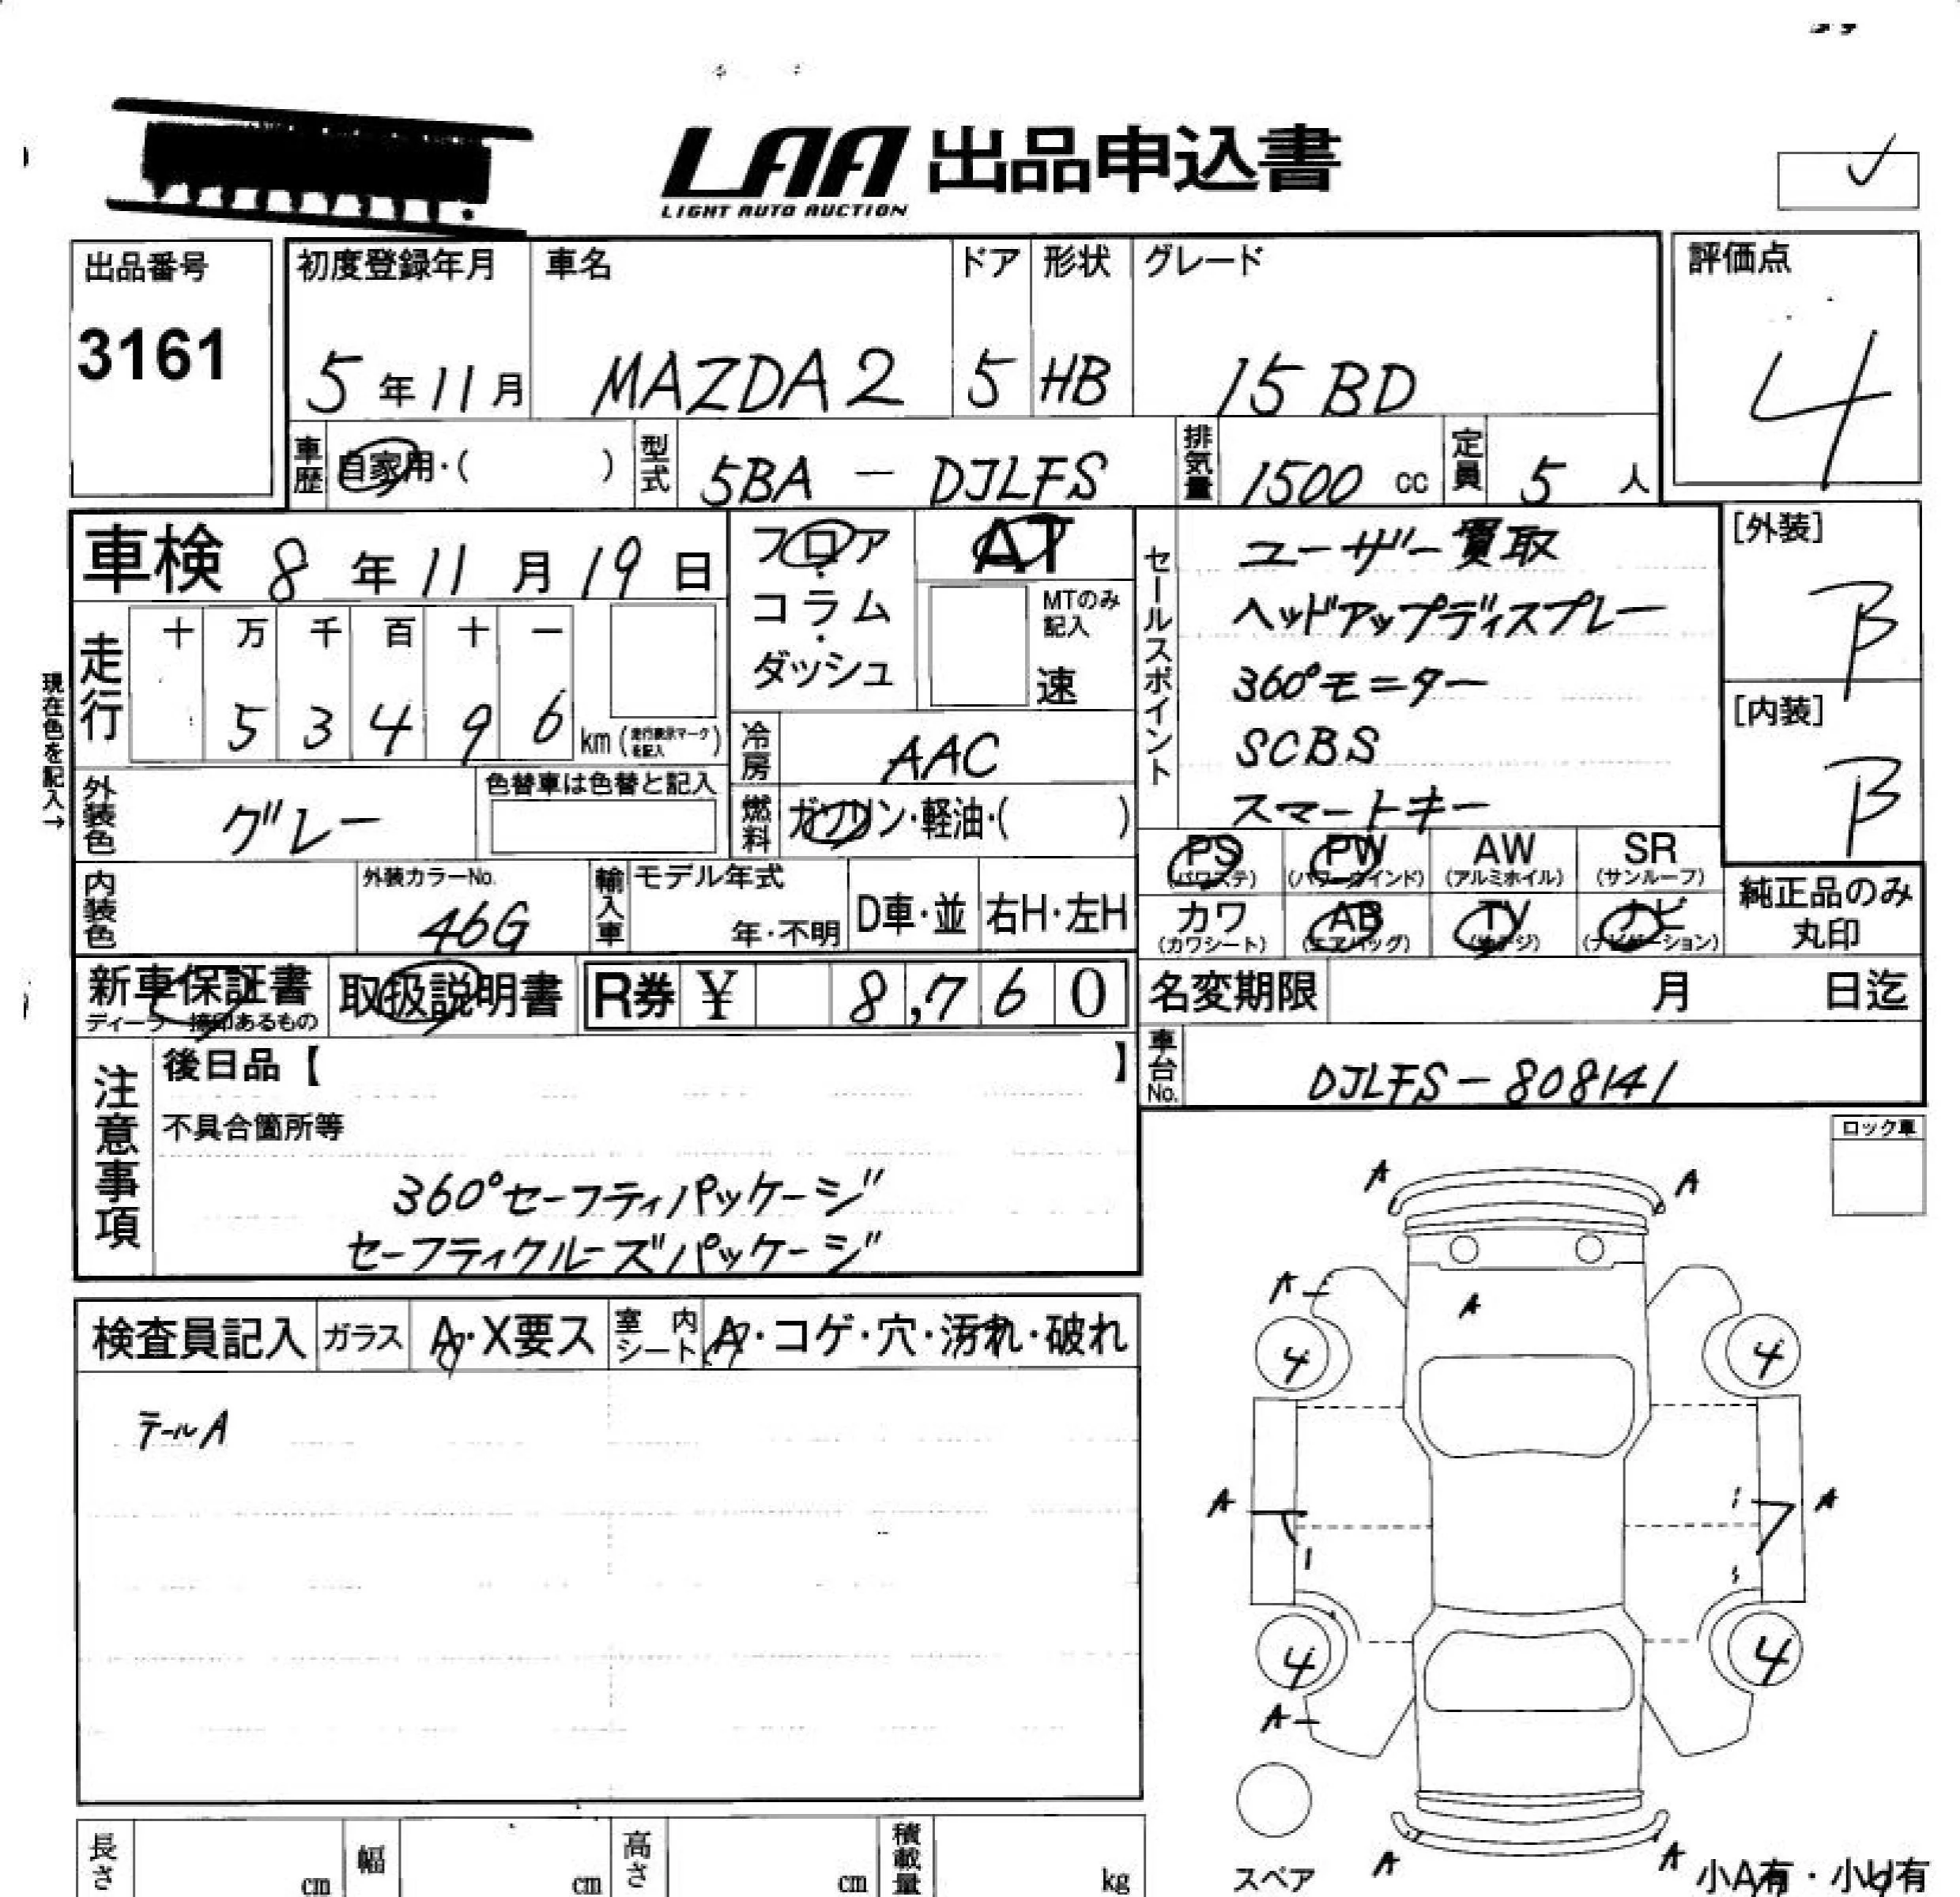 LAA 出品申込書
LIGHT AUTO AUCTION
出品番号
3161
初度登録年月
5年11月
車名
MAZDA2
ドア
5
形状
HB
グレード
15BD
評価点
4
車歴
自家用・( )
型式
5BA - DJLFS
排気量
1500 cc
定員
5 人
車検 8年11月19日
フロア・コラム・ダッシュ
AT
MTのみ記入
速
セールスポイント
ユーザー買取
ヘッドアップディスプレー
360°モニター
SCBS
スマートキー
[外装]
B
[内装]
B
現在色を記入→
走行
十 万 千 百 十 一
5 3 4 9 6 km (走行表示マークを記入)
冷房
AAC
外装色
グレー
色替車は色替と記入
燃料
ガソリン・軽油・( )
PS (パワステ)
PW (パワーウインド)
AW (アルミホイル)
SR (サンルーフ)
カワ (カワシート)
AB (エアバッグ)
TV
ナビ (ナビゲーション)
純正品のみ丸印
内装色
外装カラーNo.
46G
輸入車
モデル年式
年・不明
D車・並
右H・左H
新車保証書
取扱説明書
R券 ¥ 8,760
名変期限
月 日迄
車台No.
DJLFS-808141
注意事項
後日品【 】
不具合箇所等
360°セーフティパッケージ
セーフティクルーズパッケージ
ロック車
検査員記入
ガラス
A・X要ス
室内シート
A・コゲ・穴・汚れ・破れ
テールA
A A
A
A
4 4
A A
4 4
A
A A
スペア
小A有・小U有
長さ cm
幅 cm
高さ cm
積載量 kg